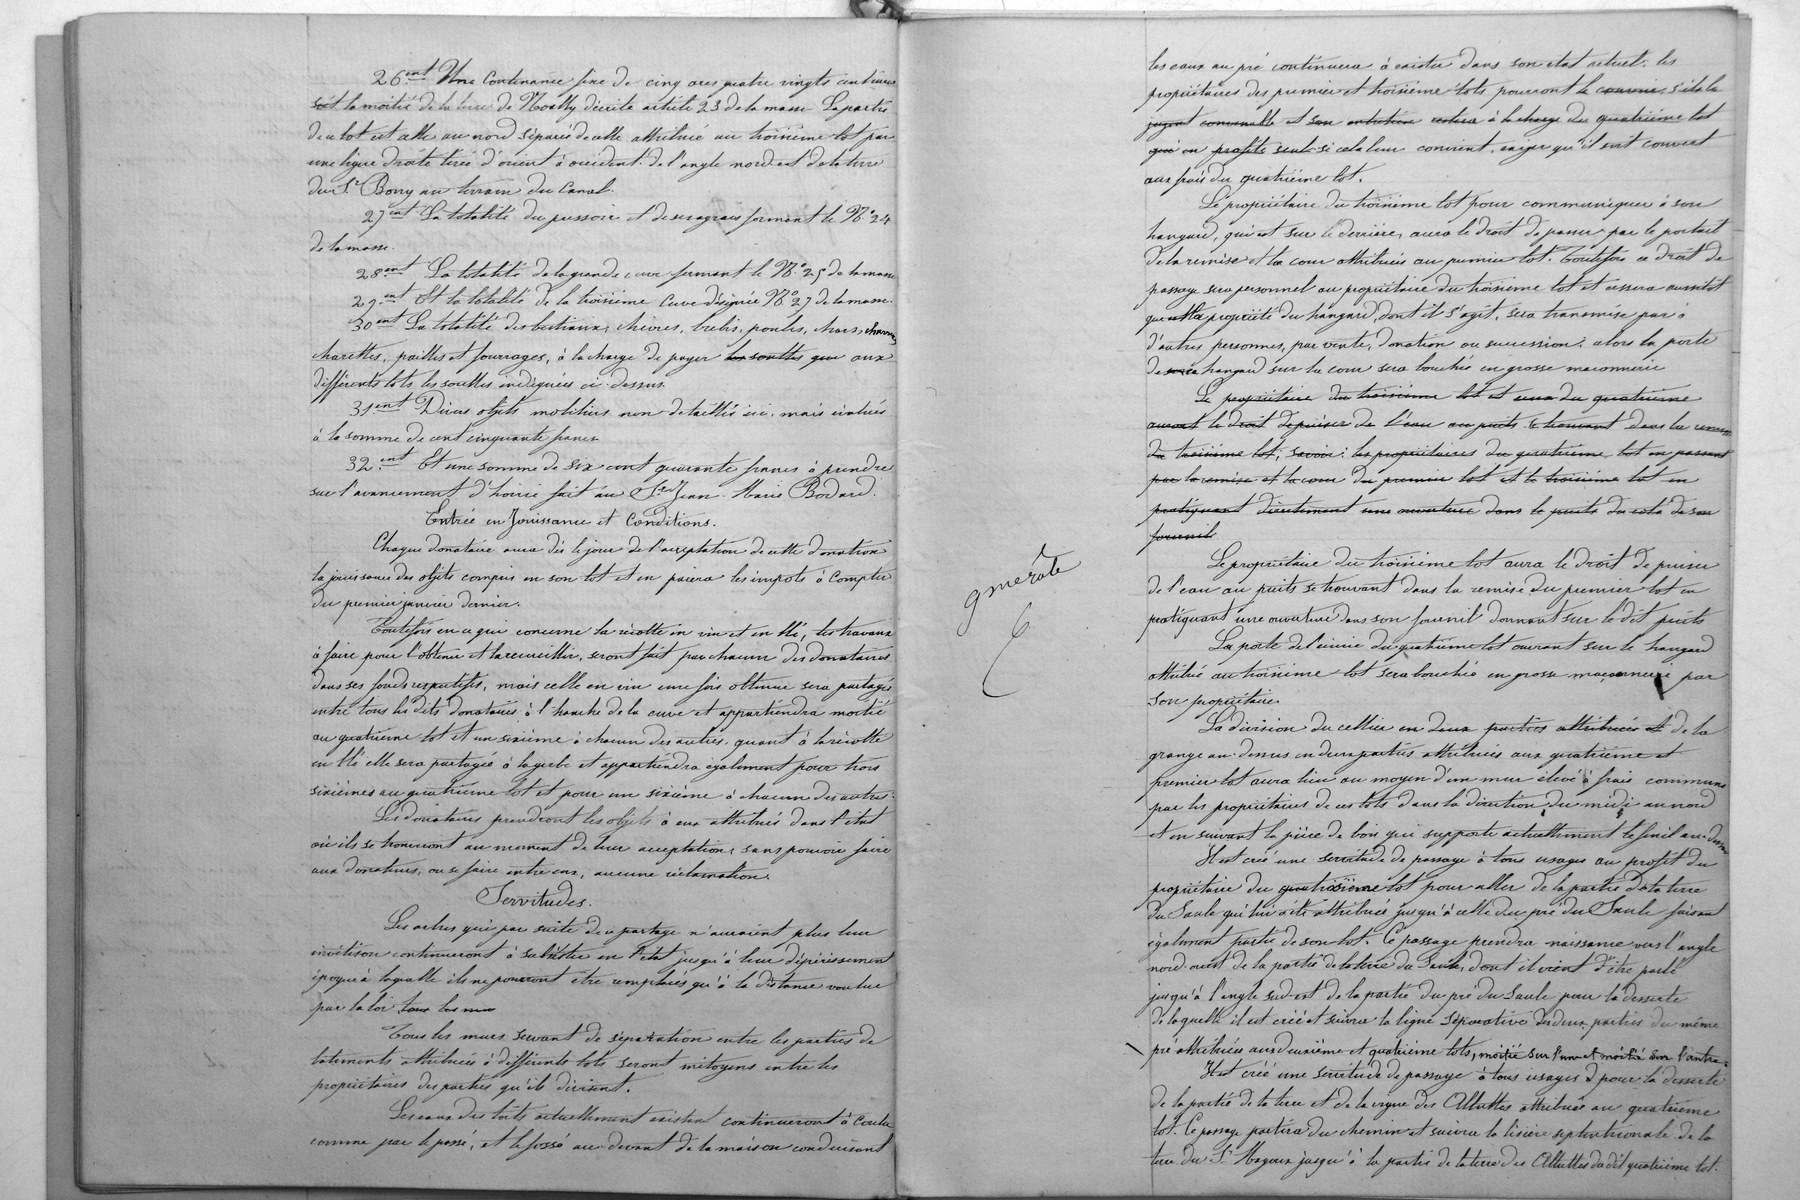 26ent Une Contenance fixe de cinq ares quatre vingts centiares
soit la moitié de la terre de décrite article 23 de la masse La partie
de ce lot est celle au nord séparée de celle attribuée au troisième lot par
une ligne droite tirée d'orient à occident de l'angle nord-est de la terre
du Sr Bony au terrain du Canal.
27ent La totalité du pressoir et de ses agrais formant le No 24
de la masse.
28ent La totalité de la grande cuve formant le No 25 de la masse
29ent Et la totalité de la troisième Cuve désignée No 27 de la masse.
30ent La totalité des bestiaux, chèvres, brebis, poules, chars, charrues,
charettes, pailles et fourrages, à la charge de payer les soultes que aux
différents lots les soultes indiquées ci-dessus.
31ent Divers objets mobiliers non détaillés ici, mais évalués
à la somme de cent cinquante francs
32ent Et une somme de six cent quarante francs à prendre
sur l'avancement d'hoirie fait au Sr Jean-Marie Bodard.
Entrée en Jouissance et Conditions.
Chaque donataire aura dès le jour de l'acceptation de cette donation
la jouissance des objets compris en son lot et en paiera les impots à Compter
du premier janvier dernier.
Toutefois en ce qui concerne la récolte en vin et en blé, les travaux
à faire pour l'obtenir et la recueillir, seront fait par chacun des donataires
dans ses fonds respectifs, mais celle en vin une fois obtenue sera partagée
entre tous les dits donataires à l'hanche de la cuve et appartiendra moitié
au quatrième lot et un sixième à chacun des autres. quant à la récolte
en blé elle sera partagée à la gerbe et appartiendra également pour trois
sixièmes au quatrième lot et pour un sixième à chacun des autres.
Les donataires prendront les objets à eux attribués dans l'état
où ils se trouveront au moment de leur acceptation, sans pouvoir faire
aux donateurs, ou se faire entre eux, aucune réclamation.
Servitudes.
Les arbres qui par suite de ce partage n'auraient plus leur
continueront à subsister en l'état jusqu'à leur dépérissement
époque à laquelle ils ne pourront être remplacés qu'à la distance voulue
par la loi. tous les murs
Tous les murs servant de séparation entre les parties de
batiments attribuées à différents lots seront mitoyens entre les
propriétaires des parties qu'ils divisent.
Les eaux des toits actuellement existent continueront à couler
comme par le passé, et le fossé au devant de la maison conduisant
les eaux au pré continuera à exister dans son état actuel. les
propriétaires des premier et troisième lots pourront le couvrir, s'ils le
jugent convenable et son entretien restera à la charge du quatrième lot
qui en profite seul si cela leur convient, exiger qu'il soit couvert
aux frais du quatrième lot.
Le propriétaire du troisième lot pour communiquer à son
hangard, qui est sur le derrière, aura le droit de passer par le portail
de la remise et la cour attribuées au premier lot. Toutefois ce droit de
passage sera personnel au propriétaire du troisième lot et cessera aussitôt
que la propriété du hangard, dont il s'agit, sera transmise par à
d'autres personnes, par vente, donation ou succession: alors la porte
de hangard sur la cour sera bouchée en grosse maçonnerie
Le propriétaire du troisième lot et ceux du quatrième
auront le droit de puiser de l'eau au puits se trouvant dans la remise
du troisième lot, savoir: les propriétaires du quatrième lot en passant
par la remise et la cour du premier lot et le troisième lot en
pratiquant directement une ouverture dans le puits du coté de son
fournil
Le propriétaire du troisième lot aura le droit de puiser
de l'eau au puits se trouvant dans la remise du premier lot en
pratiquant une ouverture dans son fournil donnant sur le dit puits
La porte de l'écurie du quatrième lot ouvrant sur le hangard
attribué au troisième lot sera bouchée en grosse maçonnerie par
son propriétaire.
La division du cellier en deux parties attribuées et de la
grange au-dessus en deux parties attribuées aux quatrième et
premier lot aura lieu au moyen d'un mur élevé à frais communs
par les propriétaires de ces lots dans la direction du midi au nord
et en suivant la pièce de bois qui supporte actuellement le fenil au-dessus
Il est créé une servitude de passage à tous usages au profit du
propriétaire du quatrième lot pour aller de la partie de la terre
du Saule qui lui a été attribuée jusqu'à celle du pré du Saule faisant
également partie de son lot. Ce passage prendra naissance vers l'angle
nord-ouest de la partie de la terre du Saule, dont il vient d'être parlé
jusqu'à l'angle sud-est de la partie du pré du Saule pour la desserte
de laquelle il est créé et suivra la ligne séparative des deux parties du même
pré attribuées aux deuxième et quatrième lots, moitié sur l'une et moitié sur l'autre.
Il est créé une servitude de passage à tous usages pour la desserte
de la partie de la terre et de la vigne des Alluttes attribuée au quatrième
lot. Ce passage partira du chemin et suivra la lisière septentrionale de la
terre du Sr jusqu'à la partie de la terre des Alluttes du dit quatrième lot.